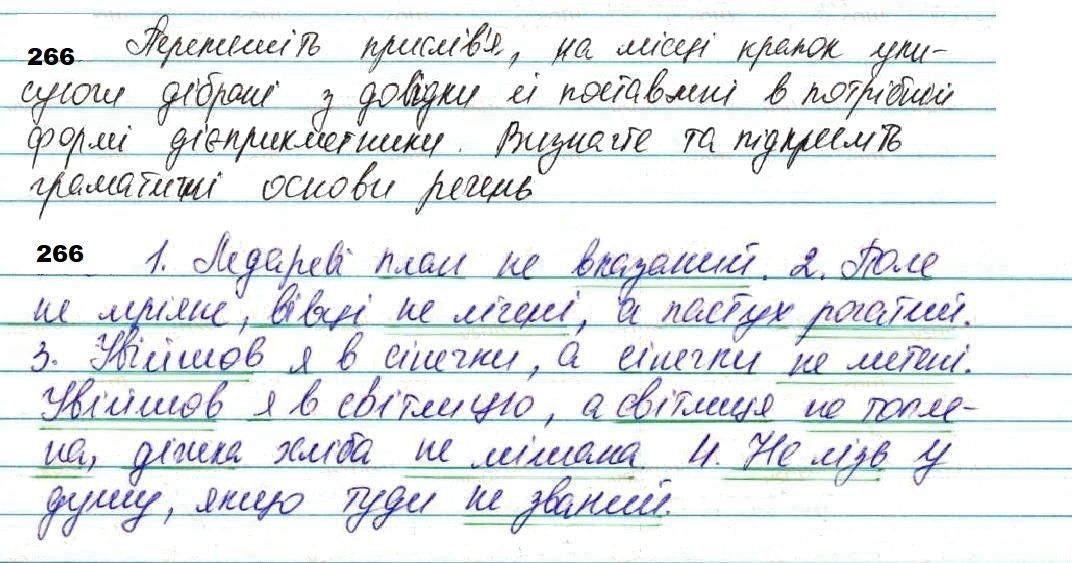 266 Перепишіть прислів'я, на місці крапок упи-
суючи дібрані з довідки й поставлені в потрібній
формі дієприкметники. Визначте та підкресліть
граматичні основи речень
266 1. Ледареві план не вказаний. 2. Поле
не міряне, вівці не лічені, а пастух рогатий.
3. Увійшов я в сінечки, а сінечки не метені.
Увійшов я в світлицю, а світлиця не топле-
на, діжка хліба не мішана. 4. Не лізь у
душу, якщо туди не званий.